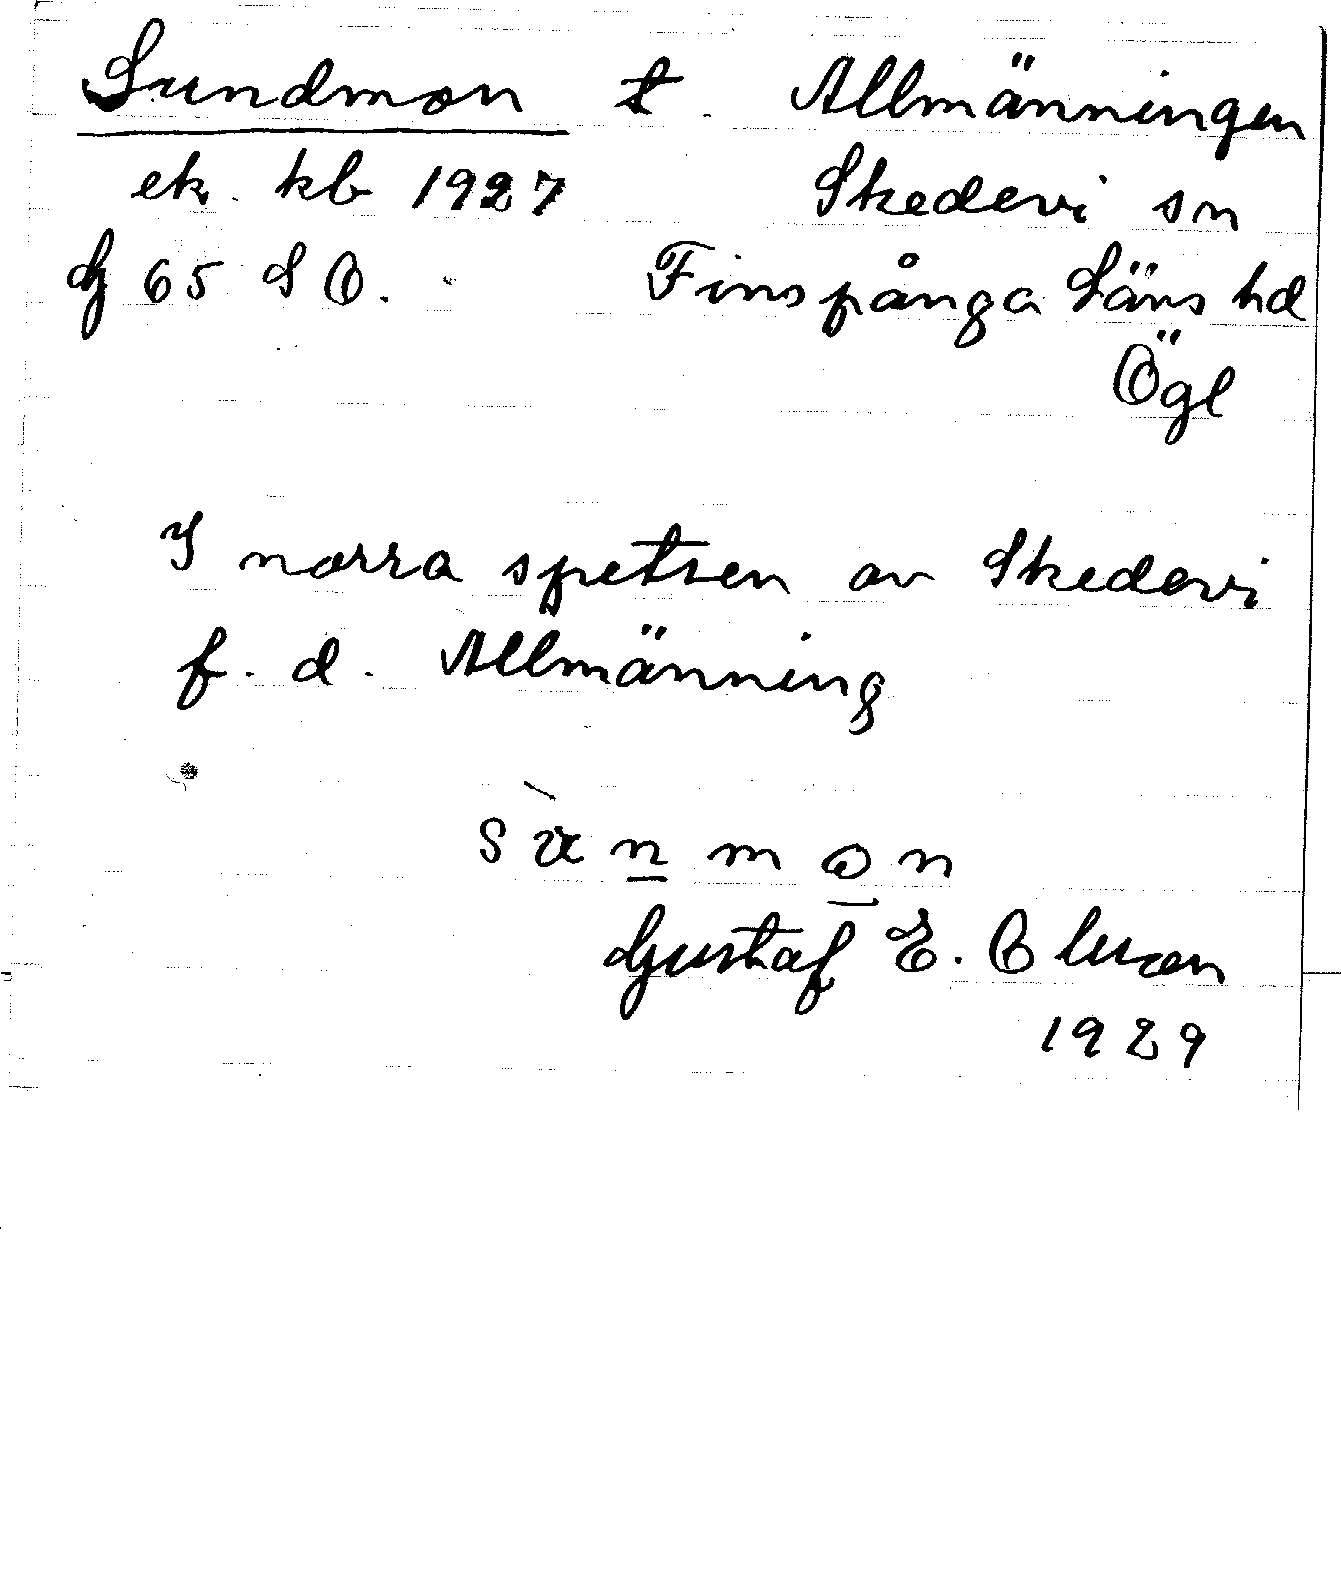 Sundmon t. Allmänningen
ek. kb 1927 Skedevi sn
G 65 SO. Finspånga Läns hd
Ögl
I norra spetsen av Skedevi
f. d. Allmänning
Gustaf E.
1929